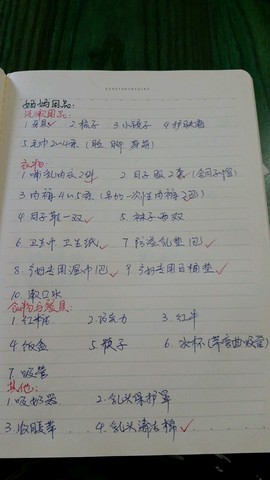 妈妈用品:
洗漱用品:
1.牙具✓ 2.梳子 3.小镜子 4.护肤霜
5.毛巾2~4条(脸 脚 身体)
衣物:
1.哺乳内衣2件 2.月子服2套(含月子帽)
3.内裤4~5条(另加一次性内裤2包)
4.月子鞋一双✓ 5.袜子两双
6.卫生巾 卫生纸✓ 7.防溢乳垫1包✓
8.产妇专用湿巾1包✓ 9.产妇专用护垫✓
10.漱口水
食物与餐具:
1.红糖 2.巧克力 3.红牛
4.饭盒 5.筷子 6.水杯(带弯曲吸管)
7.吸管
其他:
1.吸奶器 2.乳头保护罩
3.收腹带 4.乳头清洁棉✓